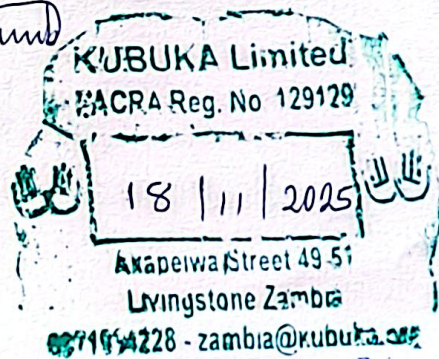 KUBUKA Limited
PACRA Reg. No 129129
18 | 11 | 2025
Akapelwa Street 49-51
Livingstone Zambia
zambia@kubuka.org